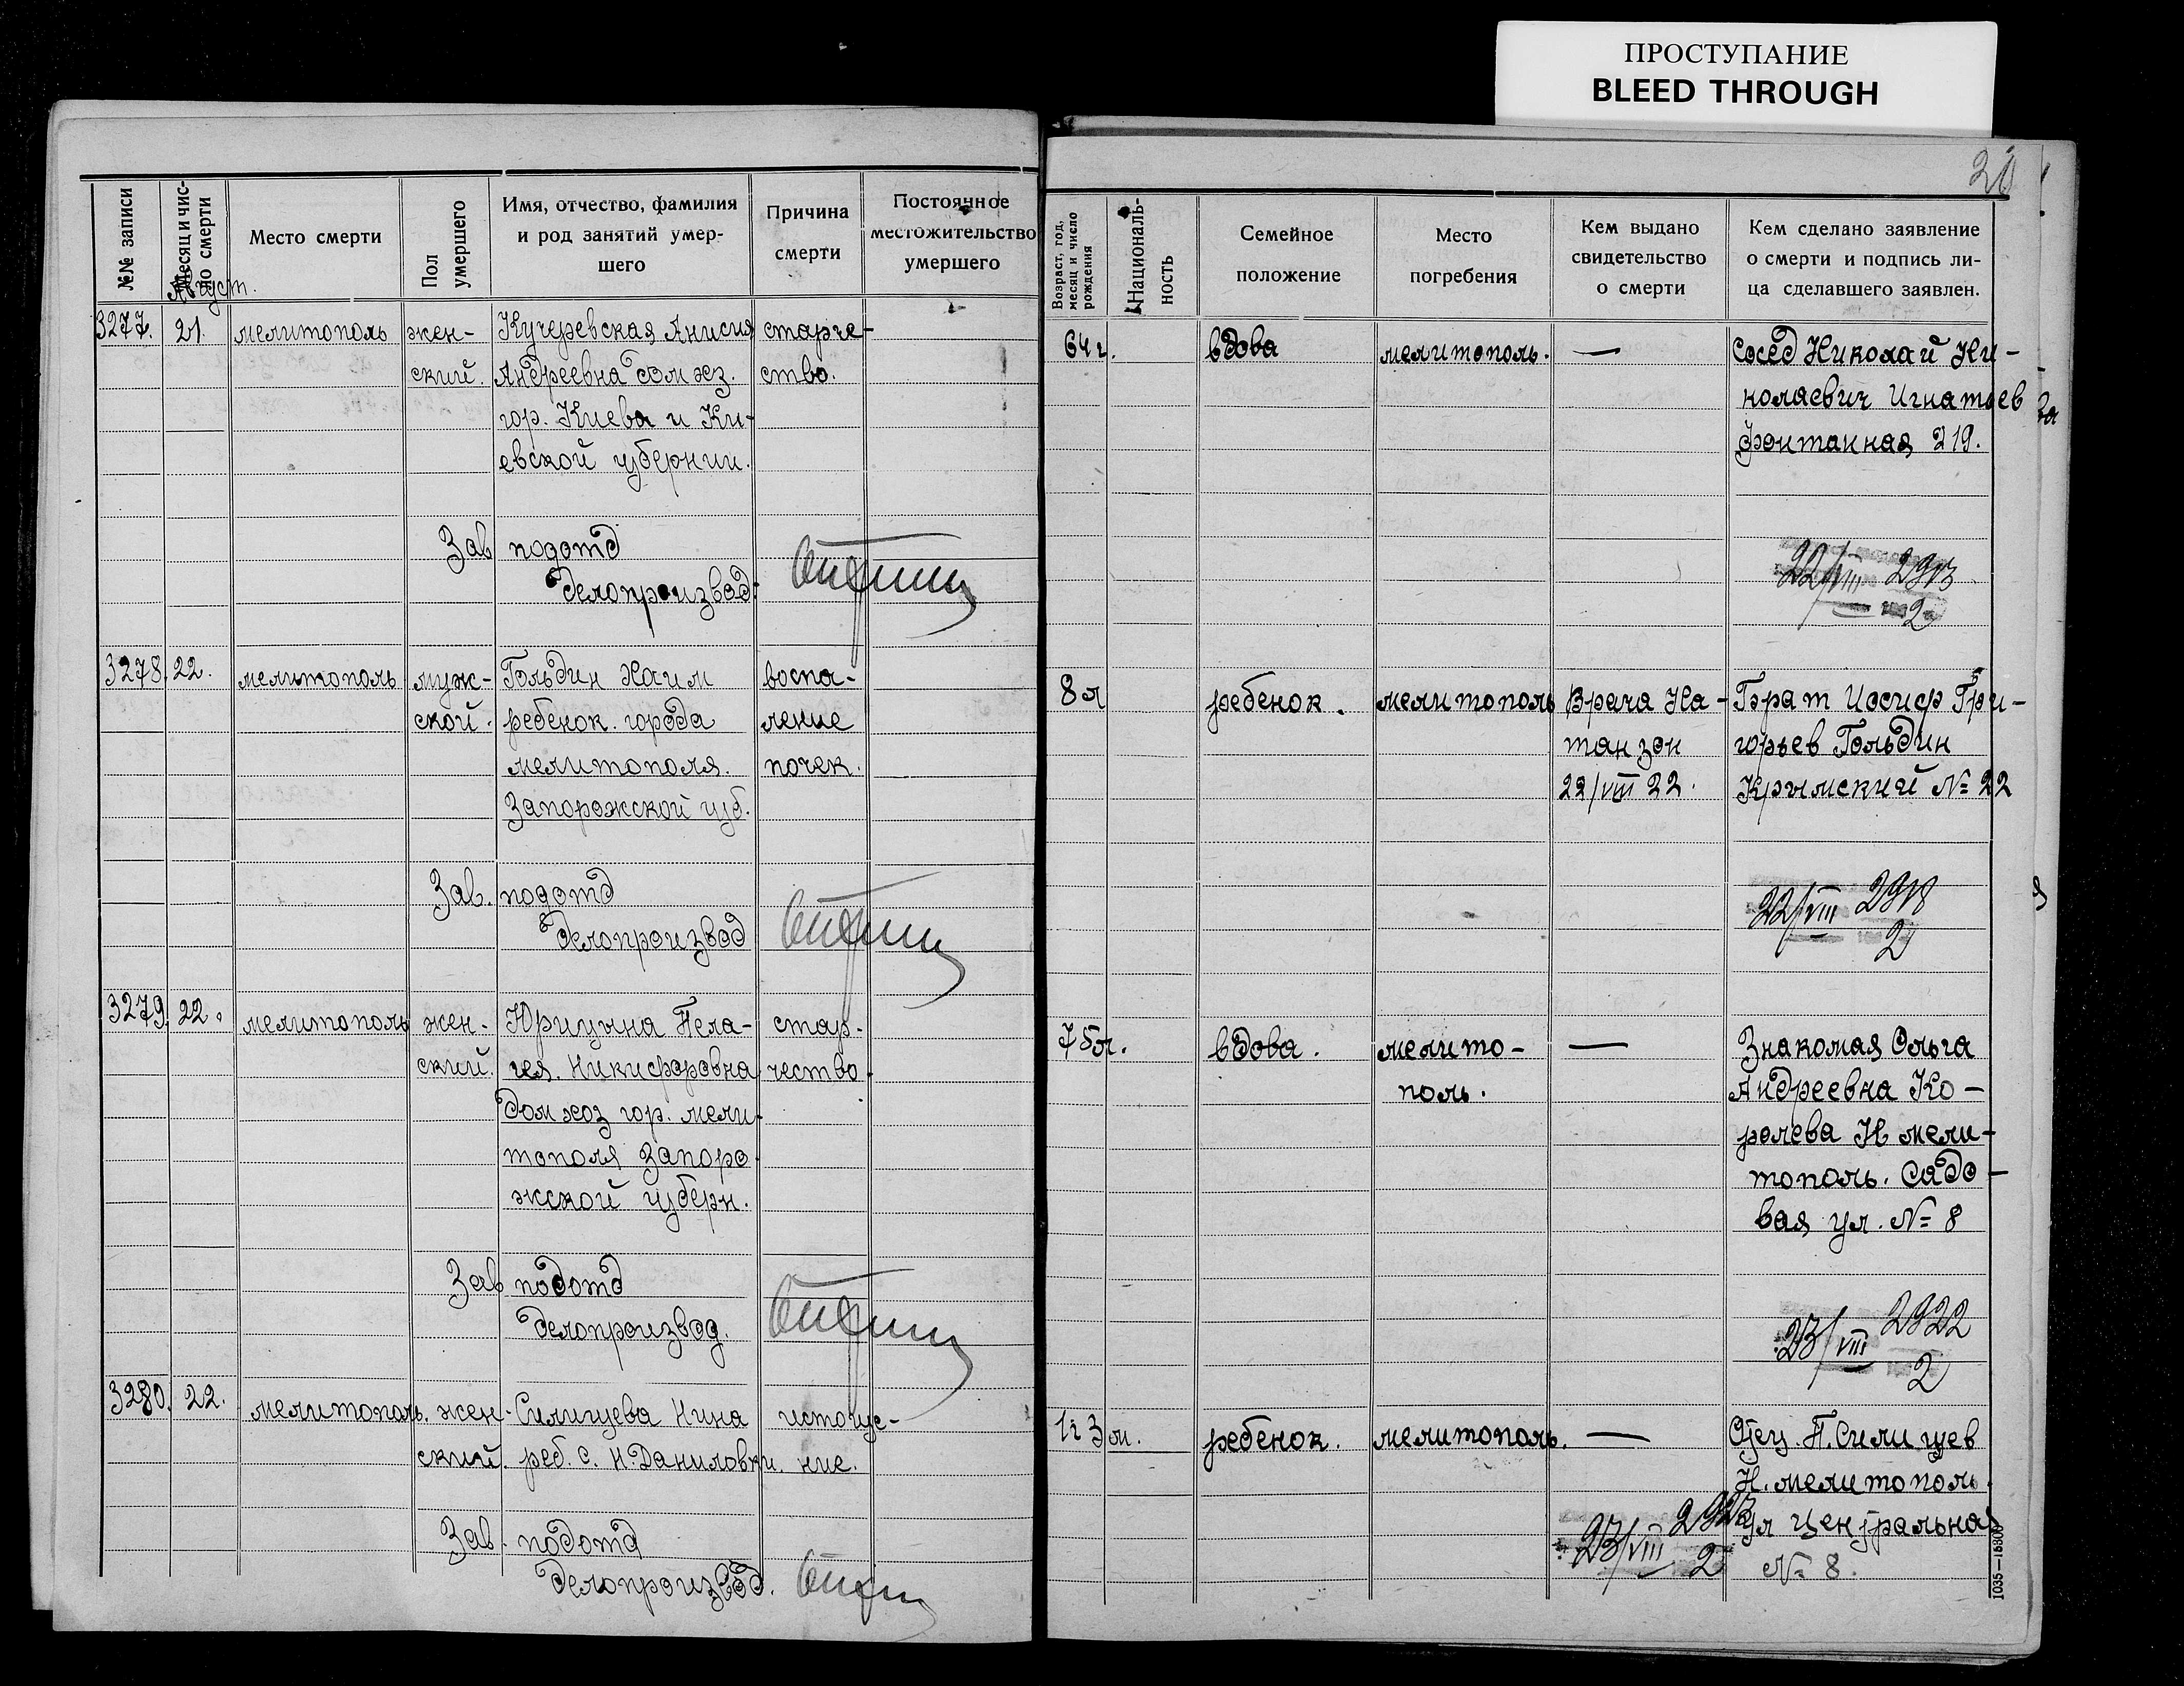 ПРОСТУПАНИЕ
BLEED THROUGH
№№ записи
Месяц и чис-
ло смерти
Место смерти
Пол
умершего
Имя, отчество, фамилия
и род занятий умер-
шего
Причина
смерти
Постоянное
местожительство
умершего
Август.
3277. 21. мелитополь жен- Кучеревская Анисия старче-
ский. Андреевна дом хоз. ство.
гор. Киева и Ки-
евской губернии.
Зав подотд
делопроизвод.
3278. 22. мелитополь муж- Гольдин Хаим воспа-
ской. ребенок. города ление
мелитополя. почек.
Запорожской губ.
Зав. подотд
делопроизвод
3279. 22. мелитополь жен- Юрицына Пела- стар-
ский. гея. Никифоровна чество.
дом хоз гор. мели-
тополя Запоро-
жской губерн.
Зав подотд
делопроизвод.
3280. 22. мелитополь. жен- Силищева Нина истоще-
ский. реб. с. Н. Даниловки. ние.
Зав. подотд
делопроизвод.
20
Возраст, год,
месяц и число
рождения
Националь-
ность
Семейное
положение
Место
погребения
Кем выдано
свидетельство
о смерти
Кем сделано заявление
о смерти и подпись ли-
ца сделавшего заявлен.
64 г. вдова мелитополь. — Сосед Николай Ни-
колаевич Игнатьев
Фонтанная 219.
22/VIII
2
8 л ребенок. мелитополь Врача На- Брат Иосиф Гри-
танзон горьев Гольдин
22/VIII 22. Крымский № 22
22/VIII 2918
2
75 л. вдова. мелито- — Знакомая Ольга
поль. Андреевна Ко-
ролева Н мели-
тополь. Садо-
вая ул. № 8
23/VIII 2922
2
1 г 3 м. ребенок. мелитополь. — Отец П. Силищев
Н. мелитополь.
ул Центральная
23/VIII 2923
2 № 8.
1035—15300